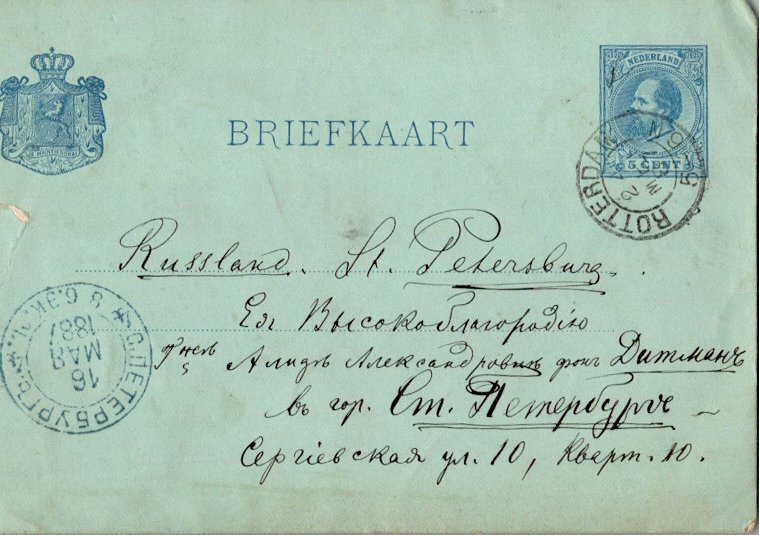 NEDERLAND
5 CENT
BRIEFKAART
ROTTERDAM
Russland. St. Petersburg.
Ея Высокоблагородію
Алидѣ Александровнѣ фонъ Дитманъ
въ гор. Ст. Петербургѣ
Сергіевская ул. 10, Кварт. 10.
С.ПЕТЕРБУРГЪ
16
МАЯ
1887